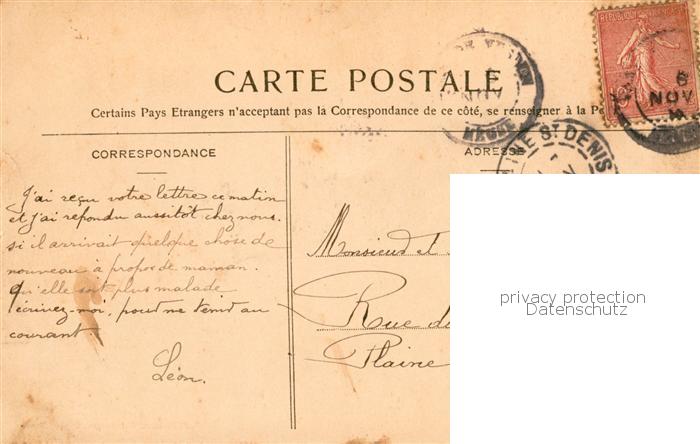 CARTE POSTALE
Certains Pays Etrangers n'acceptant pas la Correspondance de ce côté, se renseigner à la
CORRESPONDANCE
J'ai reçu votre lettre ce matin
et j'ai repondu aussitôt chez nous.
si il arrivait quelque chose de
nouveau à propos de maman.
Qu'elle soit plus malade
écrivez-moi, pour me tenir au
courant.
Léon.
ADRESSE
Monsieur et
Rue de
Plaine
6
NOV
NE ST DENIS
privacy protection
Datenschutz